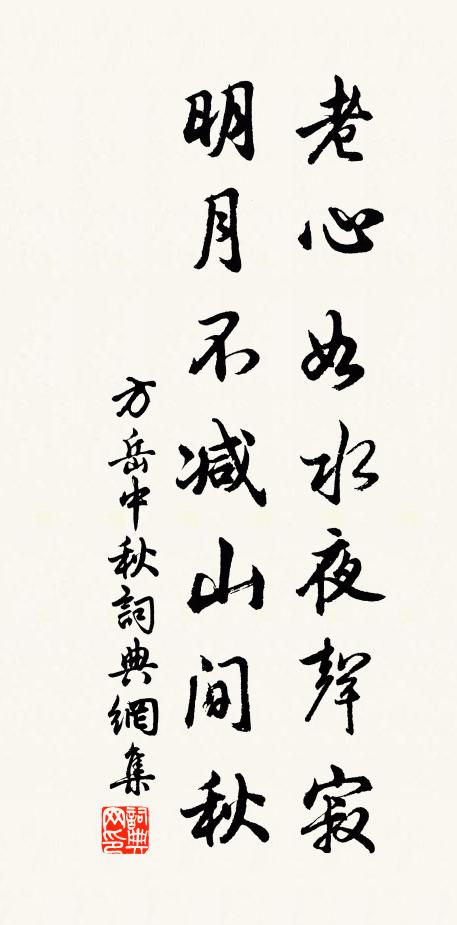 老心如水夜聲寂
明月不減山间秋
方岳中秋詞典網集
詞典網印